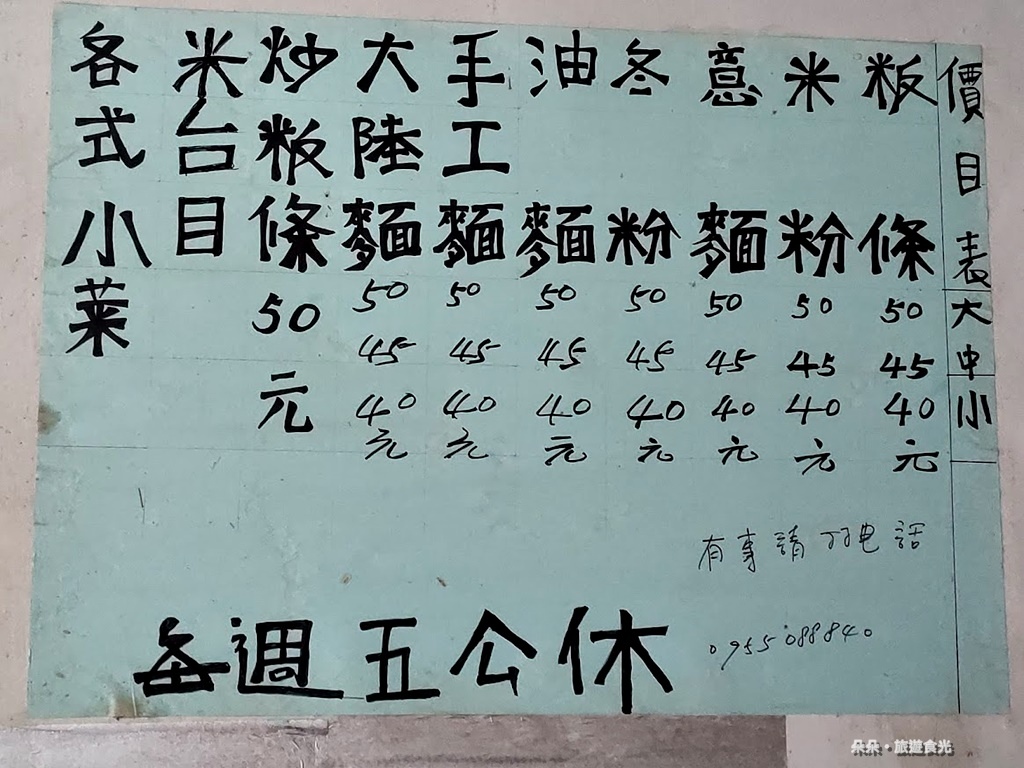 價目表 大 中 小
粄條 50 45 40 元
米粉 50 45 40 元
意麵 50 45 40 元
冬粉 50 45 40 元
油麵 50 45 40 元
手工麵 50 45 40 元
大陸麵 50 45 40 元
炒粄條 50 元
米台目
各式小菜
有事請打电話
0955 088840
每週五公休
朵朵・旅遊食光